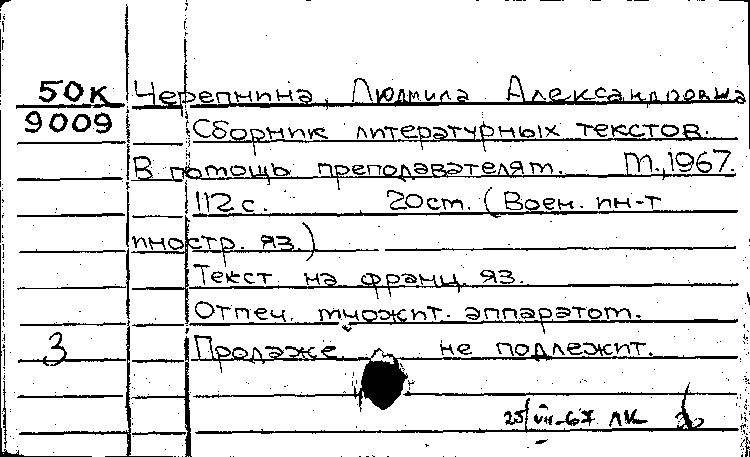 50к Черепнина, Людмила Александровна
9009 Сборник литературных текстов.
В помощь преподавателям. М., 1967.
112 с. 20 см. (Воен. ин-т
иностр. яз.)
Текст на франц. яз.
Отпеч. множит. аппаратом.
3 Продаже не подлежит.
25/VII-67 ЛК